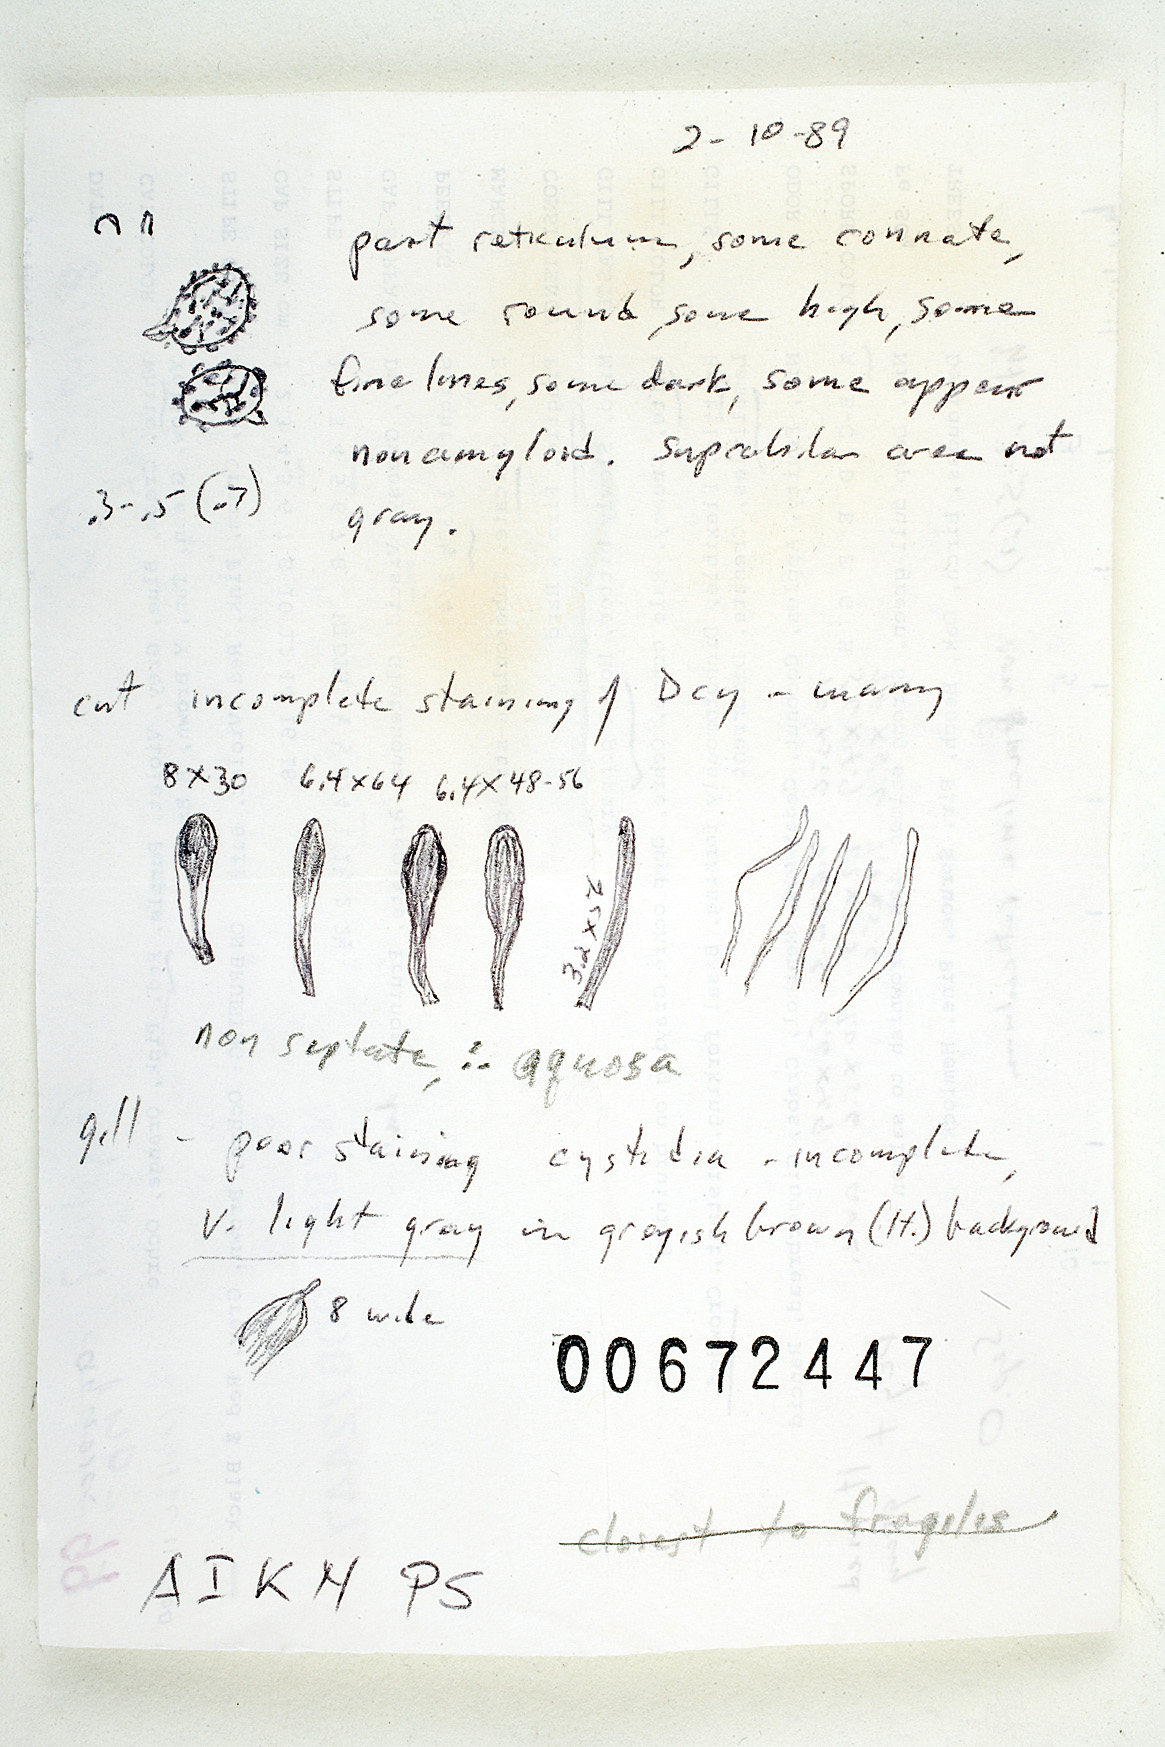 2-10-89
part reticulum, some connate,
some round, some high, some
fine lines, some dark, some appear
nonamyloid. Suprahilar area not
.3-.5 (.7) gray.
cut incomplete staining of Dcy - many
8X30 6.4X64 6.4X48-56
3.2X52
non septate, ∴ aquosa
gill - poor staining cystidia - incomplete,
v. light gray in grayish brown (lt.) background
8 wide
00672447
closest to fragiles
AIKN PS